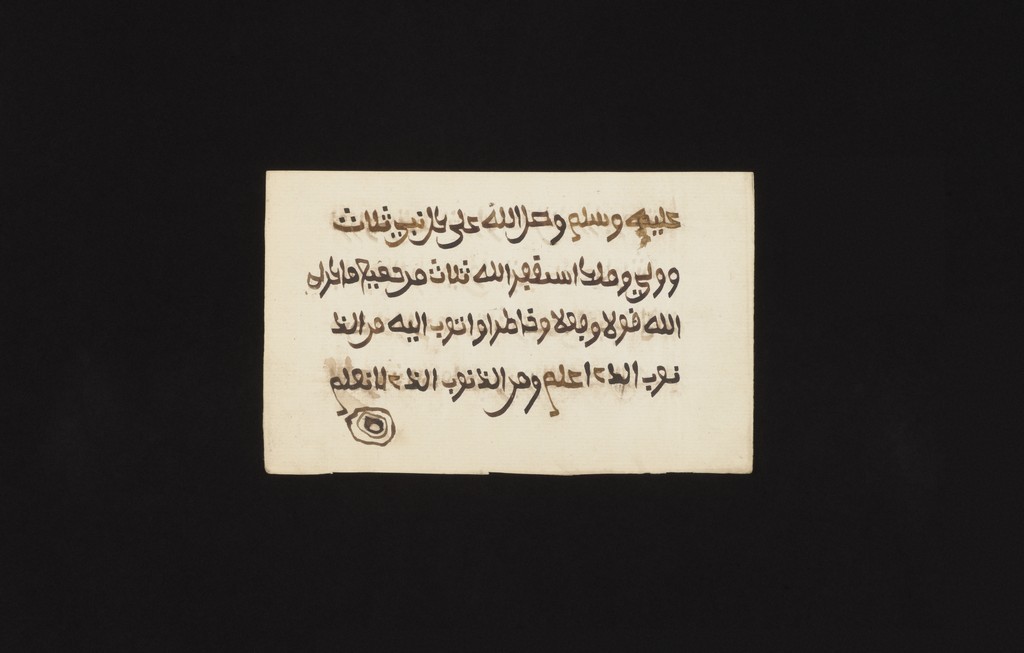 عليه وسلم وصل الله على كل نبي ثلاث
وولي وملك استغفر الله ثلاث من جميع ما كره
الله قولا وفعلا وخاطرا واتوب اليه من الذ
نوب الذ٢ اعلم ومن الذنوب الذ٢ لا نعلم